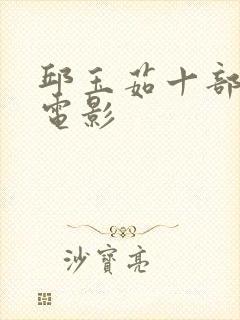 邱玉茹十部
電影
沙寶亮